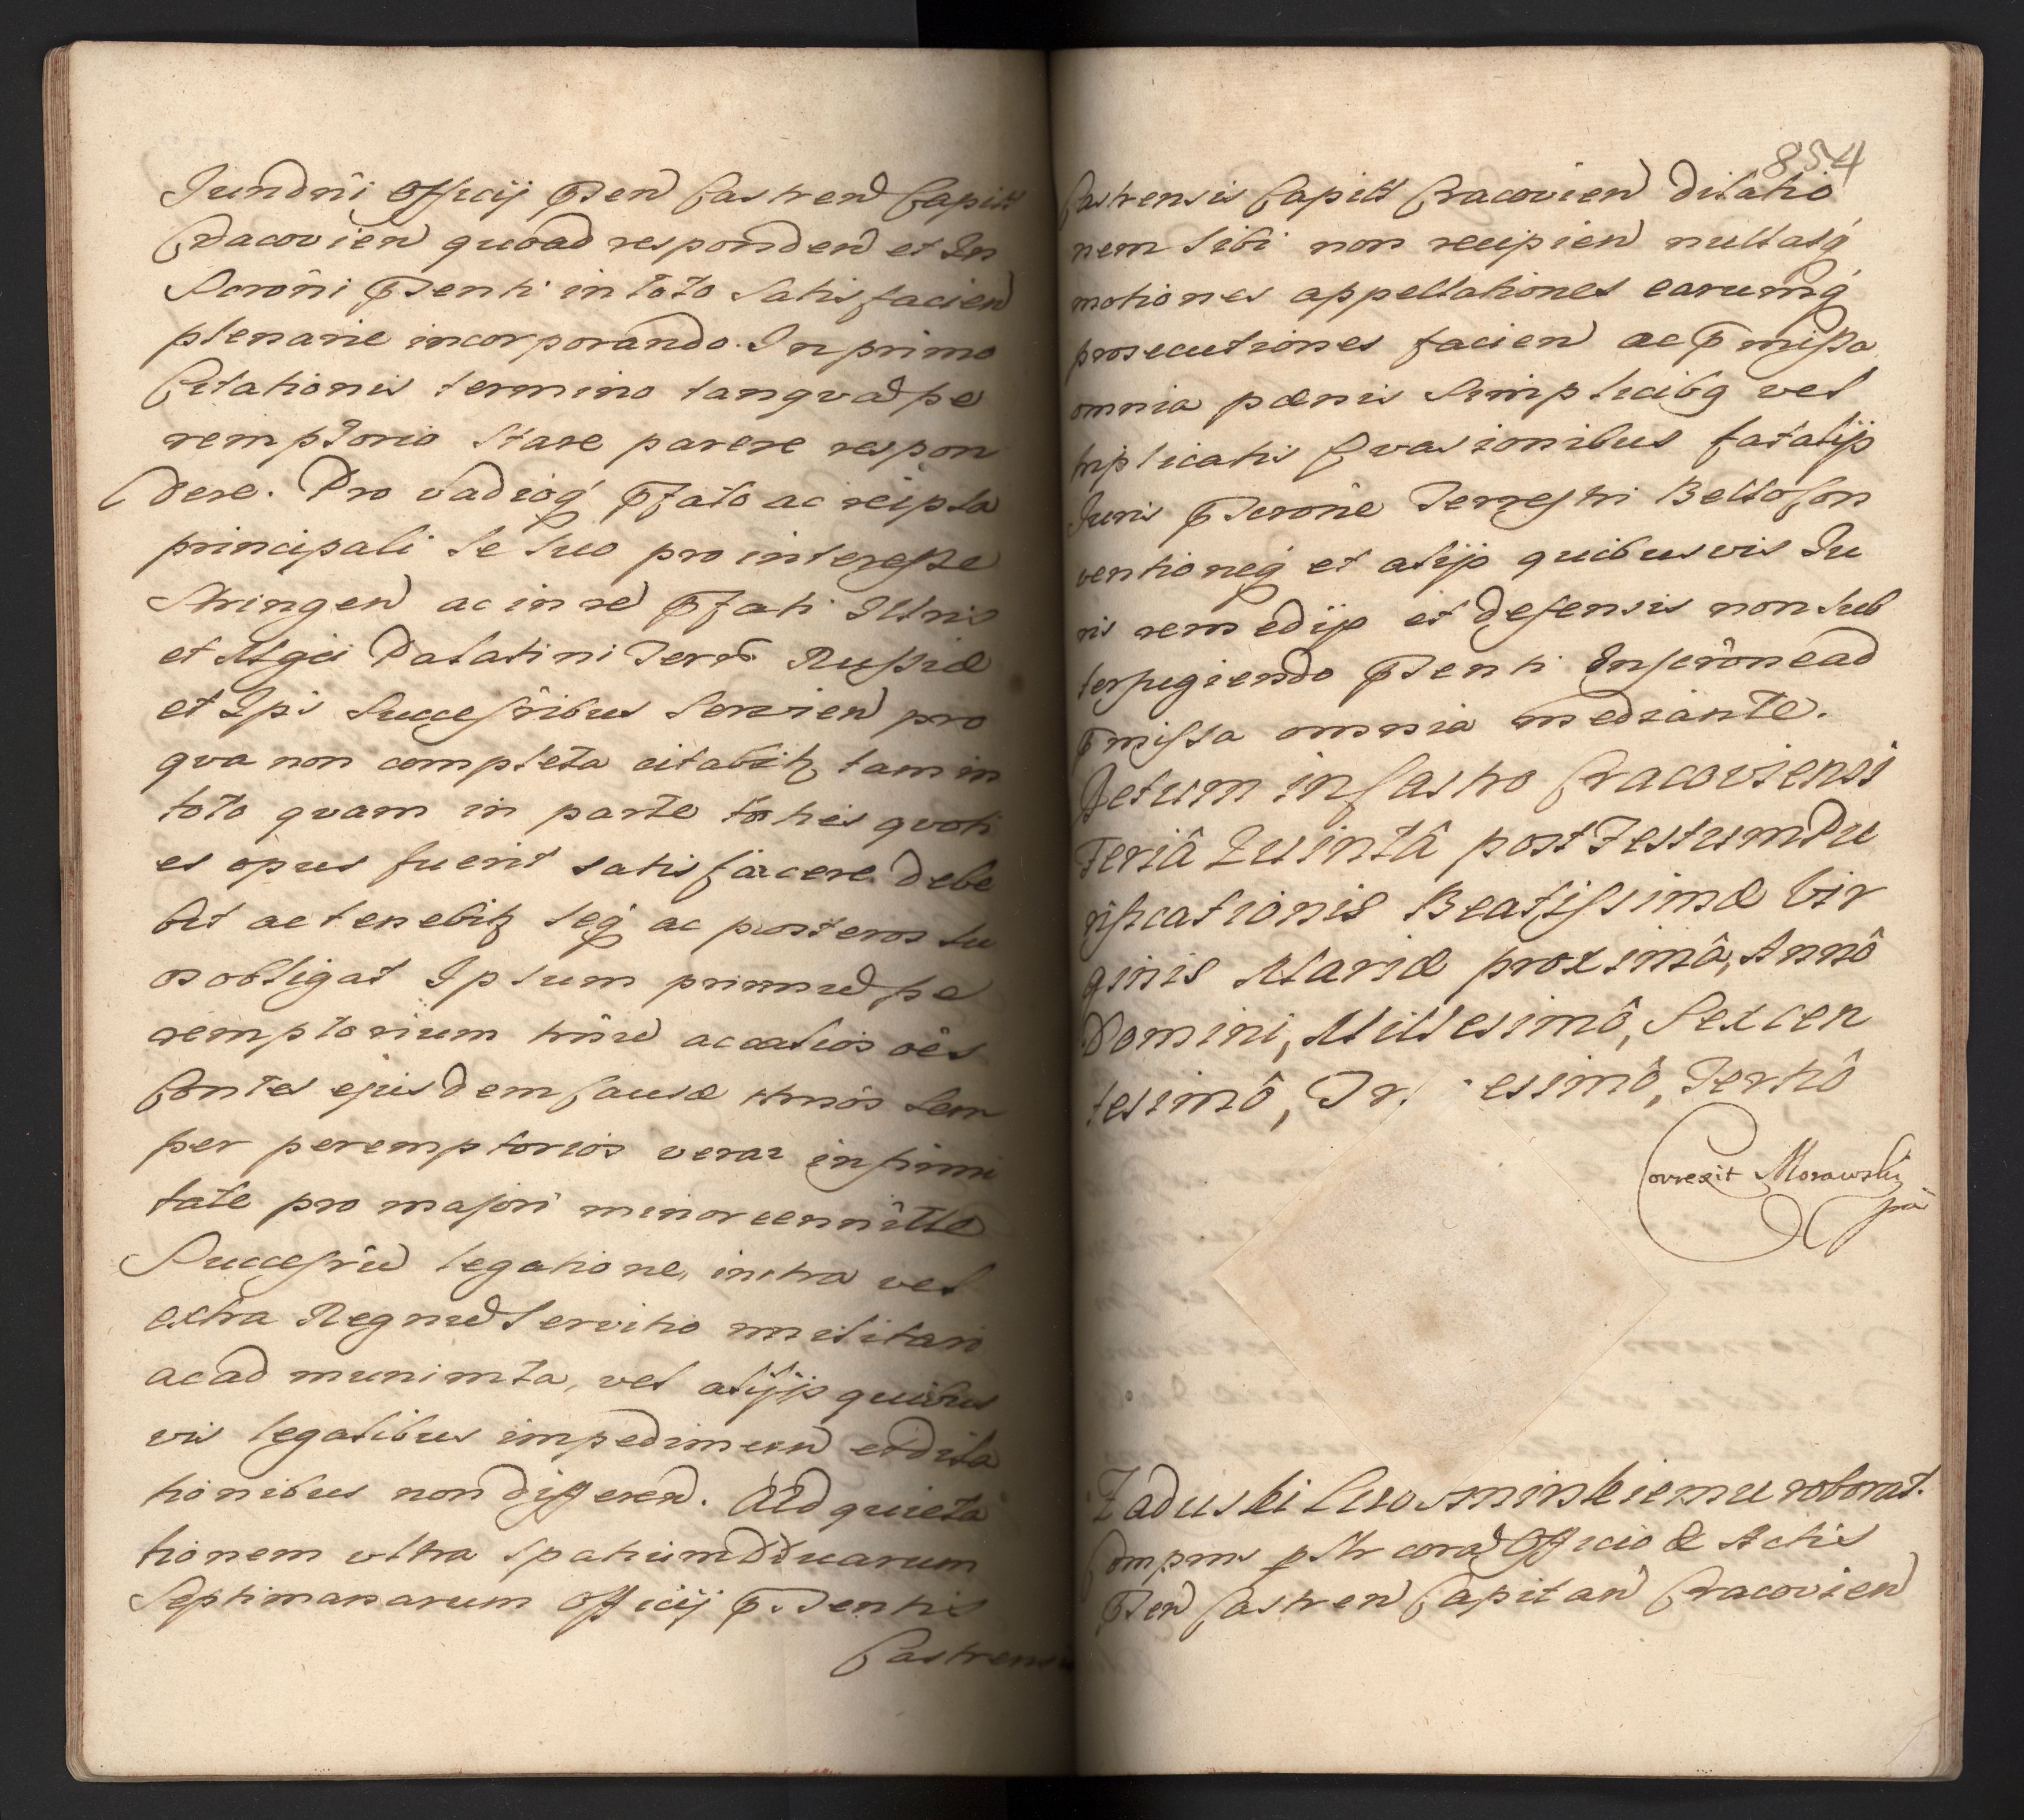 Jundni Officij pñten Castren Capitt
Cracovien quoad responden et In
Scroñi pñtenti in toto Satisfacien
plenarie incorporando. In primo
Citationis termino tanqva pe
remptorio Stare parere respon
dere. Pro vadioq pfato ac reipsa
principali se suo pro interesse
Stringen ac in re pfati Illris
et Mgci Palatini Terrar Russiæ
et Ipi Successribus Servien pro
qva non completa citabitz tam in
toto qvam in parte toties qvoti
es opus fuerit satisfacere debe
bit ac tenebitz seq ac posteros su
os obligat Ipsum primu pe
remptorium trnu ac alios oes
Contes ejusdem Causæ trnos Sem
per peremptorios vera infirmi
tate pro majori minore
Successru legatione, intra vel
extra Regnu Servitio militari
ac ad munimta, vel alijs quibus
vis legalibus impedimen et dila
tionibus non differen. Ad quieta
tionem vltra spatium duarum
Septimanarum Officij pñtentis
Castrensis
854
Castrensis Capitt Cracovien dilatio
nem sibi non recipien nullasq
motiones appellationes earumq
prosecutiones facien ac pmissa
omnia pœnis Simplicibq vel
triplicatis Evasionibus fatalijs
Juris pscrone Terrestri Bello Con
ventioneq et alijs quibusvis Ju
ris remedijs et defensis non sub
terfugiendo pñtenti Inscrone ad
pmissa omnia mediante.
Actum in Castro Cracoviensi
Feriâ Quintâ post Festum Pu
rificationis Beatissimæ Vir
ginis Mariæ proximâ, Annô
Domini, Millesimô, Sexcen
tesimô, Tr esimô, Tertiô
Correxit Morawski
Zaduski roborat.
Compms p Str cora Officio & Actis
pñten Castren Capitan Cracovien